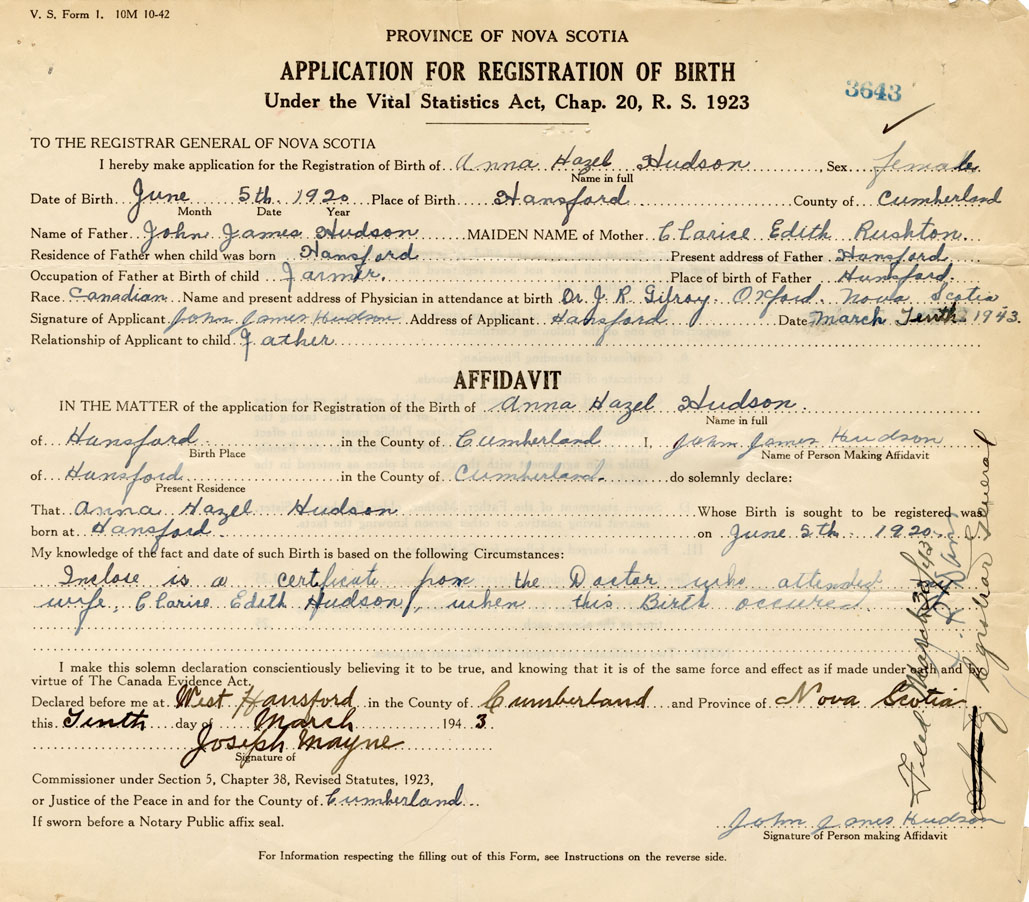 V. S. Form 1. 10M 10-42
PROVINCE OF NOVA SCOTIA
APPLICATION FOR REGISTRATION OF BIRTH
Under the Vital Statistics Act, Chap. 20, R. S. 1923
3643
TO THE REGISTRAR GENERAL OF NOVA SCOTIA
I hereby make application for the Registration of Birth of Anna Hazel Hudson, Sex female
Name in full
Date of Birth June 5th 1920 Place of Birth Hansford County of Cumberland
Month Date Year
Name of Father John James Hudson MAIDEN NAME of Mother Clarise Edith Rushton.
Residence of Father when child was born Hansford Present address of Father Hansford
Occupation of Father at Birth of child farmer. Place of birth of Father Hunsford.
Race Canadian Name and present address of Physician in attendance at birth Dr. J. R. Gilroy Oxford. Nova Scotia
Signature of Applicant John James Hudson Address of Applicant Hansford Date March Tenth 1943.
Relationship of Applicant to child Father
AFFIDAVIT
IN THE MATTER of the application for Registration of the Birth of Anna Hazel Hudson.
Name in full
of Hansford in the County of Cumberland I, John James Hudson
Birth Place Name of Person Making Affidavit
of Hansford in the County of Cumberland. do solemnly declare:
Present Residence
That Anna Hazel Hudson Whose Birth is sought to be registered was
born at Hansford on June 5th 1920
My knowledge of the fact and date of such Birth is based on the following Circumstances:
Inclose is a certificate from the Doctor who attended my
wife, Clarise Edith Hudson, when this Birth occured
I make this solemn declaration conscientiously believing it to be true, and knowing that it is of the same force and effect as if made under oath and by
virtue of The Canada Evidence Act.
Declared before me at West Hansford in the County of Cumberland and Province of Nova Scotia
this Tinth day of March 1943
Joseph Mayne
Signature of
Commissioner under Section 5, Chapter 38, Revised Statutes, 1923,
or Justice of the Peace in and for the County of Cumberland
If sworn before a Notary Public affix seal.
John James Hudson
Signature of Person making Affidavit
For Information respecting the filling out of this Form, see Instructions on the reverse side.
Filed March 30/43
Deputy Registrar General